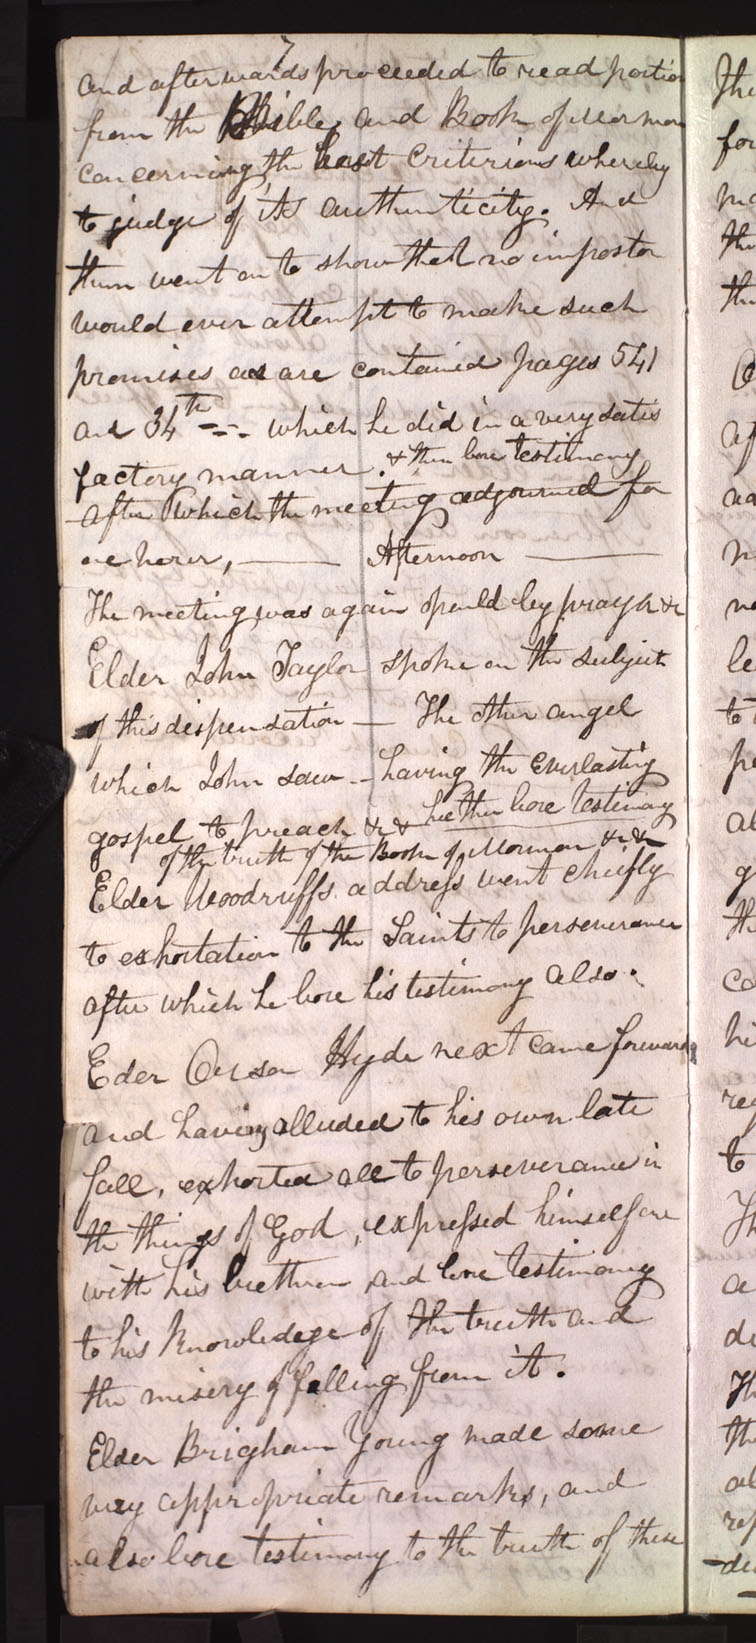 7
and afterwards proceeded to read portion
from the Bible, and Book of Mormon
concerning the best criterions whereby
to judge of its authenticity. And
then went on to show that no impostor
would ever attempt to make such
promises as are contained pages 541
and 34th --- which he did in a very satis
factory manner. & then bore testimony
after which the meeting adjourned for
one hour, —— Afternoon ——
The meeting was again opened by prayer &
Elder John Taylor spoke on the subject
of this dispensation — The other angel
which John saw — having the everlasting
gospel to preach &c & he then bore testimony
of the truth of the Book of Mormon &c &c
Elder Woodruffs address went chiefly
to exhortation to the Saints to perseverance
after which he bore his testimony also.
Eder Orson Hyde next came forward
and having alluded to his own late
fall, exhorted all to perseverance in
the things of God, expressed himself one
with his brethren and bore testimony
to his knowledge of the truth and
the misery of falling from it.
Elder Brigham Young made some
very appropriate remarks, and
also bore testimony to the truth of these